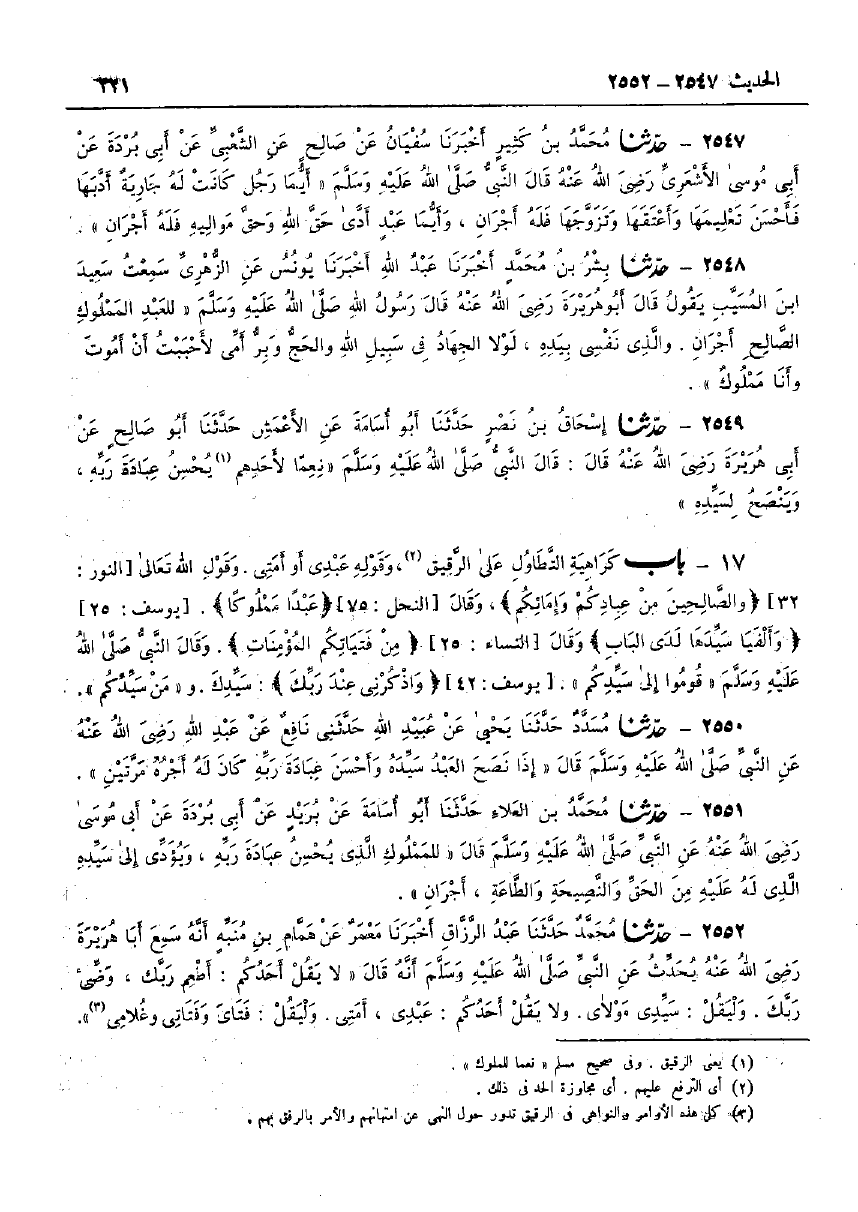 الحديث ٢٥٤٧ – ٢٥٥٢ ٣٣١
٢٥٤٧ – حدّثنا مُحَمَّدُ بنُ كَثِيرٍ أَخْبَرَنَا سُفْيَانُ عَنْ صَالِحٍ عَنِ الشَّعْبِىِّ عَنْ أَبِى بُرْدَةَ عَنْ
أَبِى مُوسىٰ الأَشْعَرِىِّ رَضِىَ اللهُ عَنْهُ قَالَ النَّبِىُّ صَلَّىٰ اللهُ عَلَيْهِ وَسَلَّمَ « أَيُّمَا رَجُلٍ كَانَتْ لَهُ جَارِيَةٌ أَدَّبَهَا
فَأَحْسَنَ تَعْلِيمَهَا وَأَعْتَقَهَا وَتَزَوَّجَهَا فَلَهُ أَجْرَانِ ، وَأَيُّمَا عَبْدٍ أَدَّىٰ حَقَّ اللهِ وَحَقَّ مَوَالِيهِ فَلَهُ أَجْرَانِ » .
٢٥٤٨ – حدّثنا بِشْرُ بنُ مُحَمَّدٍ أَخْبَرَنَا عَبْدُ اللهِ أَخْبَرَنَا يُونُسُ عَنِ الزُّهْرِىِّ سَمِعْتُ سَعِيدَ
ابنَ المُسَيَّبِ يَقُولُ قَالَ أَبُو هُرَيْرَةَ رَضِىَ اللهُ عَنْهُ قَالَ رَسُولُ اللهِ صَلَّىٰ اللهُ عَلَيْهِ وَسَلَّمَ « للعَبْدِ المَمْلُوكِ
الصَّالِحِ أَجْرَانِ . والَّذِى نَفْسِى بِيَدِهِ ، لَوْلا الجِهَادُ فِى سَبِيلِ اللهِ والحَجُّ وَبِرُّ أُمِّى لأَحْبَبْتُ أَنْ أَمُوتَ
وأَنَا مَمْلُوكٌ » .
٢٥٤٩ – حدّثنا إِسْحَاقُ بنُ نَصْرٍ حَدَّثَنَا أَبُو أُسَامَةَ عَنِ الأَعْمَشِ حَدَّثَنَا أَبُو صَالِحٍ عَنْ
أَبِى هُرَيْرَةَ رَضِىَ اللهُ عَنْهُ قَالَ : قَالَ النَّبِىُّ صَلَّىٰ اللهُ عَلَيْهِ وَسَلَّمَ « نِعِمَّا لأَحَدِهِم (١) يُحْسِنُ عِبَادَةَ رَبِّهِ ،
وَيَنْصَحُ لِسَيِّدِهِ »
١٧ – باب كَرَاهِيَةِ التَّطَاوُلِ عَلىٰ الرَّقِيقِ (٢) ، وَقَوْلِهِ عَبْدِى أَو أَمَتِى . وَقَوْلِ اللهِ تَعَالىٰ [ النور :
٣٢ ] ﴿ والصَّالِحِينَ مِنْ عِبَادِكُمْ وَإِمَائِكُمْ ﴾ ، وَقَالَ [ النحل : ٧٥ ] ﴿ عَبْدًا مَمْلُوكًا ﴾ . [ يوسف : ٢٥ ]
﴿ وَأَلْفَيَا سَيِّدَهَا لَدَى البَابِ ﴾ وَقَالَ [ النساء : ٢٥ ] ﴿ مِنْ فَتَيَاتِكُم المُؤْمِنَاتِ ﴾ . وَقَالَ النَّبِىُّ صَلَّىٰ اللهُ
عَلَيْهِ وَسَلَّمَ « قُومُوا إِلىٰ سَيِّدِكُم » . [ يوسف : ٤٢ ] ﴿ وَاذْكُرْنِى عِنْدَ رَبِّكَ ﴾ : سَيِّدِكَ . و « مَنْ سَيِّدُكُم » .
٢٥٥٠ – حدّثنا مُسَدَّدٌ حَدَّثَنَا يَحْيىٰ عَنْ عُبَيْدِ اللهِ حَدَّثَنِى نَافِعٌ عَنْ عَبْدِ اللهِ رَضِىَ اللهُ عَنْهُ
عَنِ النَّبِىِّ صَلَّىٰ اللهُ عَلَيْهِ وَسَلَّمَ قَالَ « إِذَا نَصَحَ العَبْدُ سَيِّدَهُ وَأَحْسَنَ عِبَادَةَ رَبِّهِ كَانَ لَهُ أَجْرُهُ مَرَّتَيْنِ » .
٢٥٥١ – حدّثنا مُحَمَّدُ بن العَلاءِ حَدَّثَنَا أَبُو أُسَامَةَ عَنْ بُرَيْدٍ عَنْ أَبِى بُرْدَةَ عَنْ أَبِى مُوسَىٰ
رَضِىَ اللهُ عَنْهُ عَنِ النَّبِىِّ صَلَّىٰ اللهُ عَلَيْهِ وَسَلَّمَ قَالَ « للمَمْلُوكِ الَّذِى يُحْسِنُ عِبَادَةَ رَبِّهِ ، وَيُؤَدِّى إِلىٰ سَيِّدِهِ
الَّذِى لَهُ عَلَيْهِ مِنَ الحَقِّ وَالنَّصِيحَةِ وَالطَّاعَةِ ، أَجْرَانِ » .
٢٥٥٢ – حدّثنا مُحَمَّدٌ حَدَّثَنَا عَبْدُ الرَّزَّاقِ أَخْبَرَنَا مَعْمَرٌ عَنْ هَمَّامِ بنِ مُنَبِّهٍ أَنَّهُ سَمِعَ أَبَا هُرَيْرَةَ
رَضِىَ اللهُ عَنْهُ يُحَدِّثُ عَنِ النَّبِىِّ صَلَّىٰ اللهُ عَلَيْهِ وَسَلَّمَ أَنَّهُ قَالَ « لا يَقُلْ أَحَدُكُم : أَطْعِم رَبَّكَ ، وَضِّئْ
رَبَّكَ . وَلْيَقُلْ : سَيِّدِى مَوْلاىَ . ولا يَقُلْ أَحَدُكُم : عَبْدِى ، أَمَتِى . وَلْيَقُلْ : فَتَاىَ وَفَتَاتِى وغُلامِى (٣) » .
(١) يعنى الرقيق . وفى صحيح مسلم « نعما للملوك » .
(٢) أى الترفع عليهم . أى مجاوزة الحد فى ذلك .
(٣) كل هذه الأوامر والنواهى فى الرقيق تدور حول النهى عن امتهانهم والأمر بالرفق بهم .